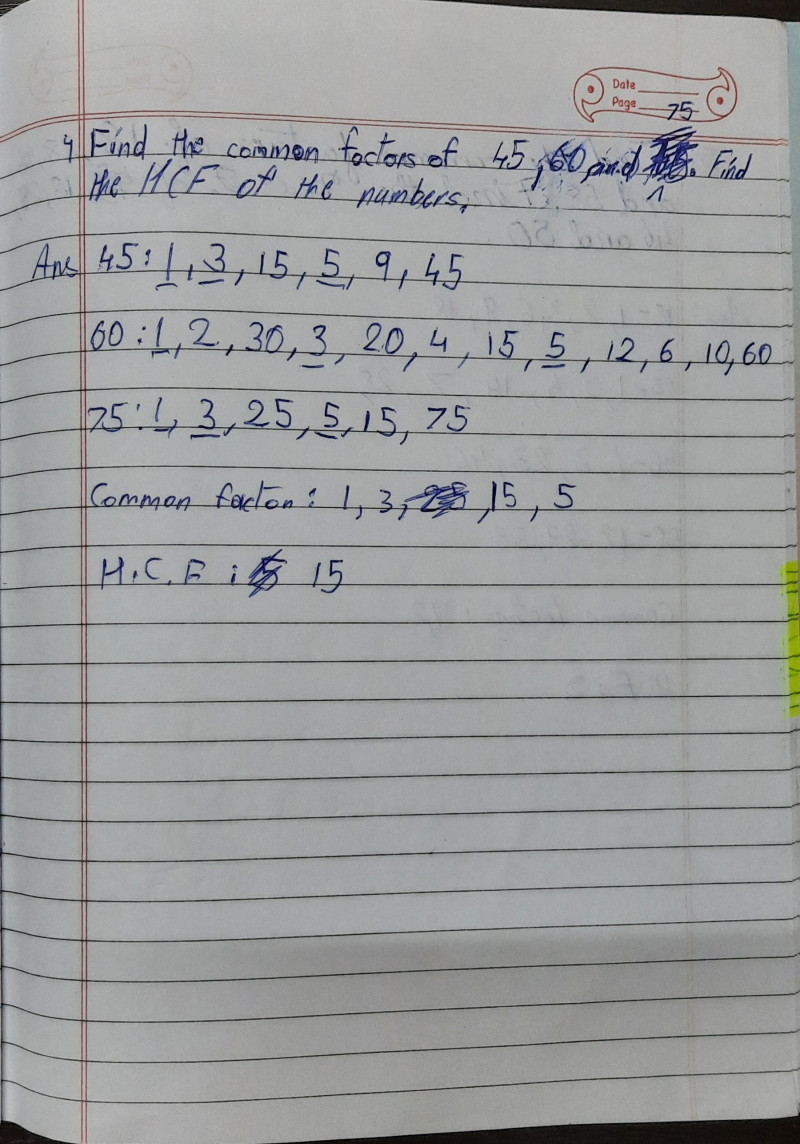 Date
Page 75
4 Find the common factors of 45, 60 and . Find
the HCF of the numbers.
Ans 45: 1, 3, 15, 5, 9, 45
60: 1, 2, 30, 3, 20, 4, 15, 5, 12, 6, 10, 60
75: 1, 3, 25, 5, 15, 75
Common factor: 1, 3, , 15, 5
H.C.F: 15